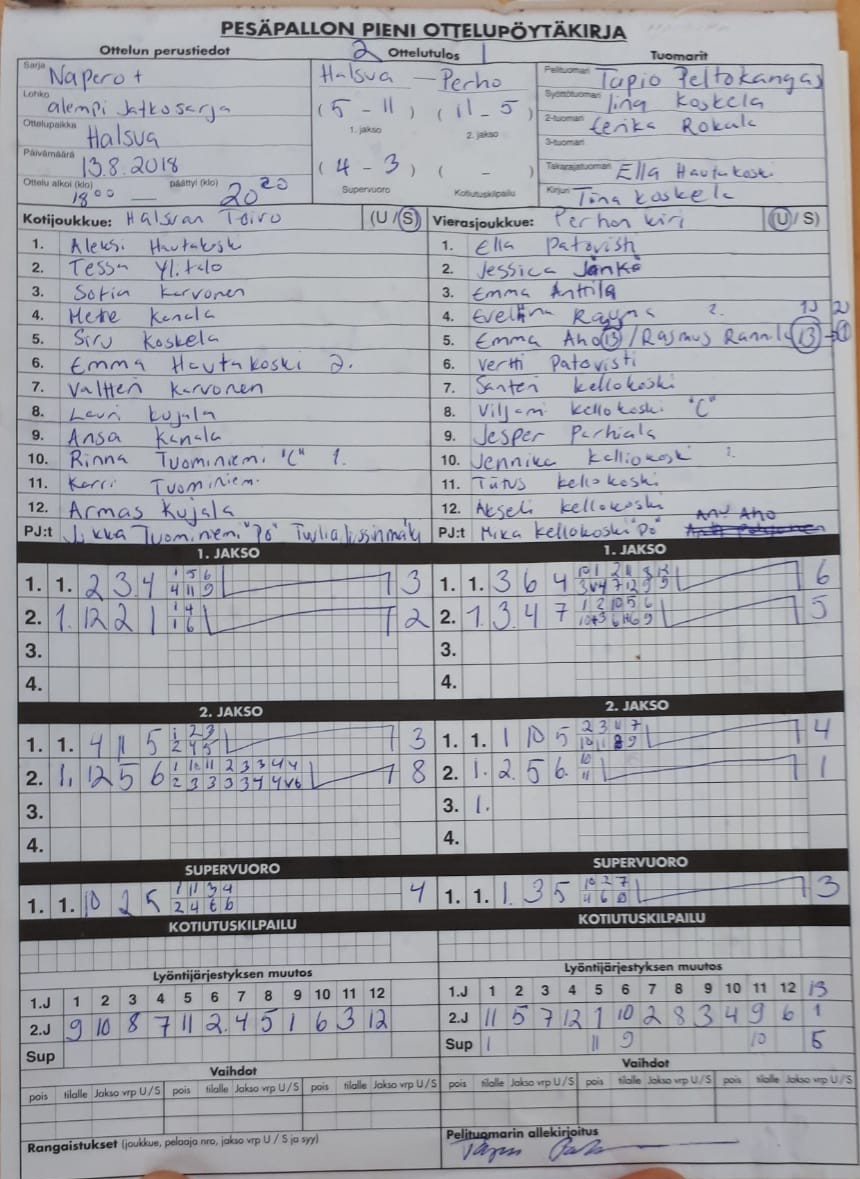 PESÄPALLON PIENI OTTELUPÖYTÄKIRJA
Ottelun perustiedot
2 Ottelutulos 1
Tuomarit
Sarja Naperot
Halsua — Perho
Pelituomari Tapio Peltokangas
Lohko alempi jatkosarja
(5 - 11) (11 - 5)
Syöttötuomari Tiina Koskela
1. jakso 2. jakso
Ottelupaikka Halsua
2-tuomari Rokala
3-tuomari
Päivämäärä 13.8.2018
(4 - 3) ( - )
Takarajatuomari Ella Hautakoski
Ottelu alkoi (klo) 18 00 — päättyi (klo) 20 20
Supervuoro Kotiutuskilpailu
Kirjuri Tiina Koskela
Kotijoukkue: Halsuan Toivo (U / S)
Vierasjoukkue: Perhon Kiri (U / S)
1. Aleksi Hautakoski
1. Ella Patovisti
2. Tessa Ylitalo
2. Jessica Jänkä
3. Sofia Karvonen
3. Emma Anttila
4. Kanala
4. Eveliina 2. 13 2
5. Siru Koskela
5. Emma Aho 13 / Rasmus Rannila 13 → 1
6. Emma Hautakoski 2.
6. Vertti Patovisti
7. Valtteri Karvonen
7. Santeri Kellokoski
8. Lauri Kujala
8. Viljami Kellokoski "C"
9. Ansa Kanala
9. Jesper Parhiala
10. Rinna Tuominiemi "C" 1.
10. Jennika Kelliokoski 1.
11. Karri Tuominiemi
11. Kellokoski
12. Armas Kujala
12. Akseli Kellokoski
PJ:t Jukka Tuominiemi "Po" Tuulia Lissinmäki
PJ:t Mika Kellokoski "Po" Anu Aho
1. JAKSO
1. JAKSO
1. 1. 2 3 4 1 5 6 3
4 11 9
1. 1. 3 6 4 6
2. 1. 12 2 1 1 4 2
1 6
2. 1. 3. 4 7 1 2 10 5 6 5
3.
3.
4.
4.
2. JAKSO
2. JAKSO
1. 1. 4 11 5 1 2 3 3
2 4 5
1. 1. 1 10 5 2 3 4 7 4
10 11 8 9
2. 1. 12 5 6 1 10 11 2 3 3 4 4 8
2 3 3 3 3 4 4 6
2. 1. 2. 5 6. 10 1
11
3.
3. 1.
4.
4.
SUPERVUORO
SUPERVUORO
1. 1. 10 2 5 1 11 3 4 4
2 4 6 6
1. 1. 1. 3 5 10 2 7 3
4 6 10
KOTIUTUSKILPAILU
KOTIUTUSKILPAILU
Lyöntijärjestyksen muutos
Lyöntijärjestyksen muutos
1.J 1 2 3 4 5 6 7 8 9 10 11 12
1.J 1 2 3 4 5 6 7 8 9 10 11 12 13
2.J 9 10 8 7 11 2. 4 5 1 6 3 12
2.J 11 5 7 12 1 10 2 8 3 4 9 6 1
Sup
Sup 1 11 9 10 5
Vaihdot
Vaihdot
pois tilalle Jakso vrp U/S pois tilalle Jakso vrp U/S pois tilalle Jakso vrp U/S
pois tilalle Jakso vrp U/S pois tilalle Jakso vrp U/S pois tilalle Jakso vrp U/S
Rangaistukset (joukkue, pelaaja nro, jakso vrp U / S ja syy)
Pelituomarin allekirjoitus